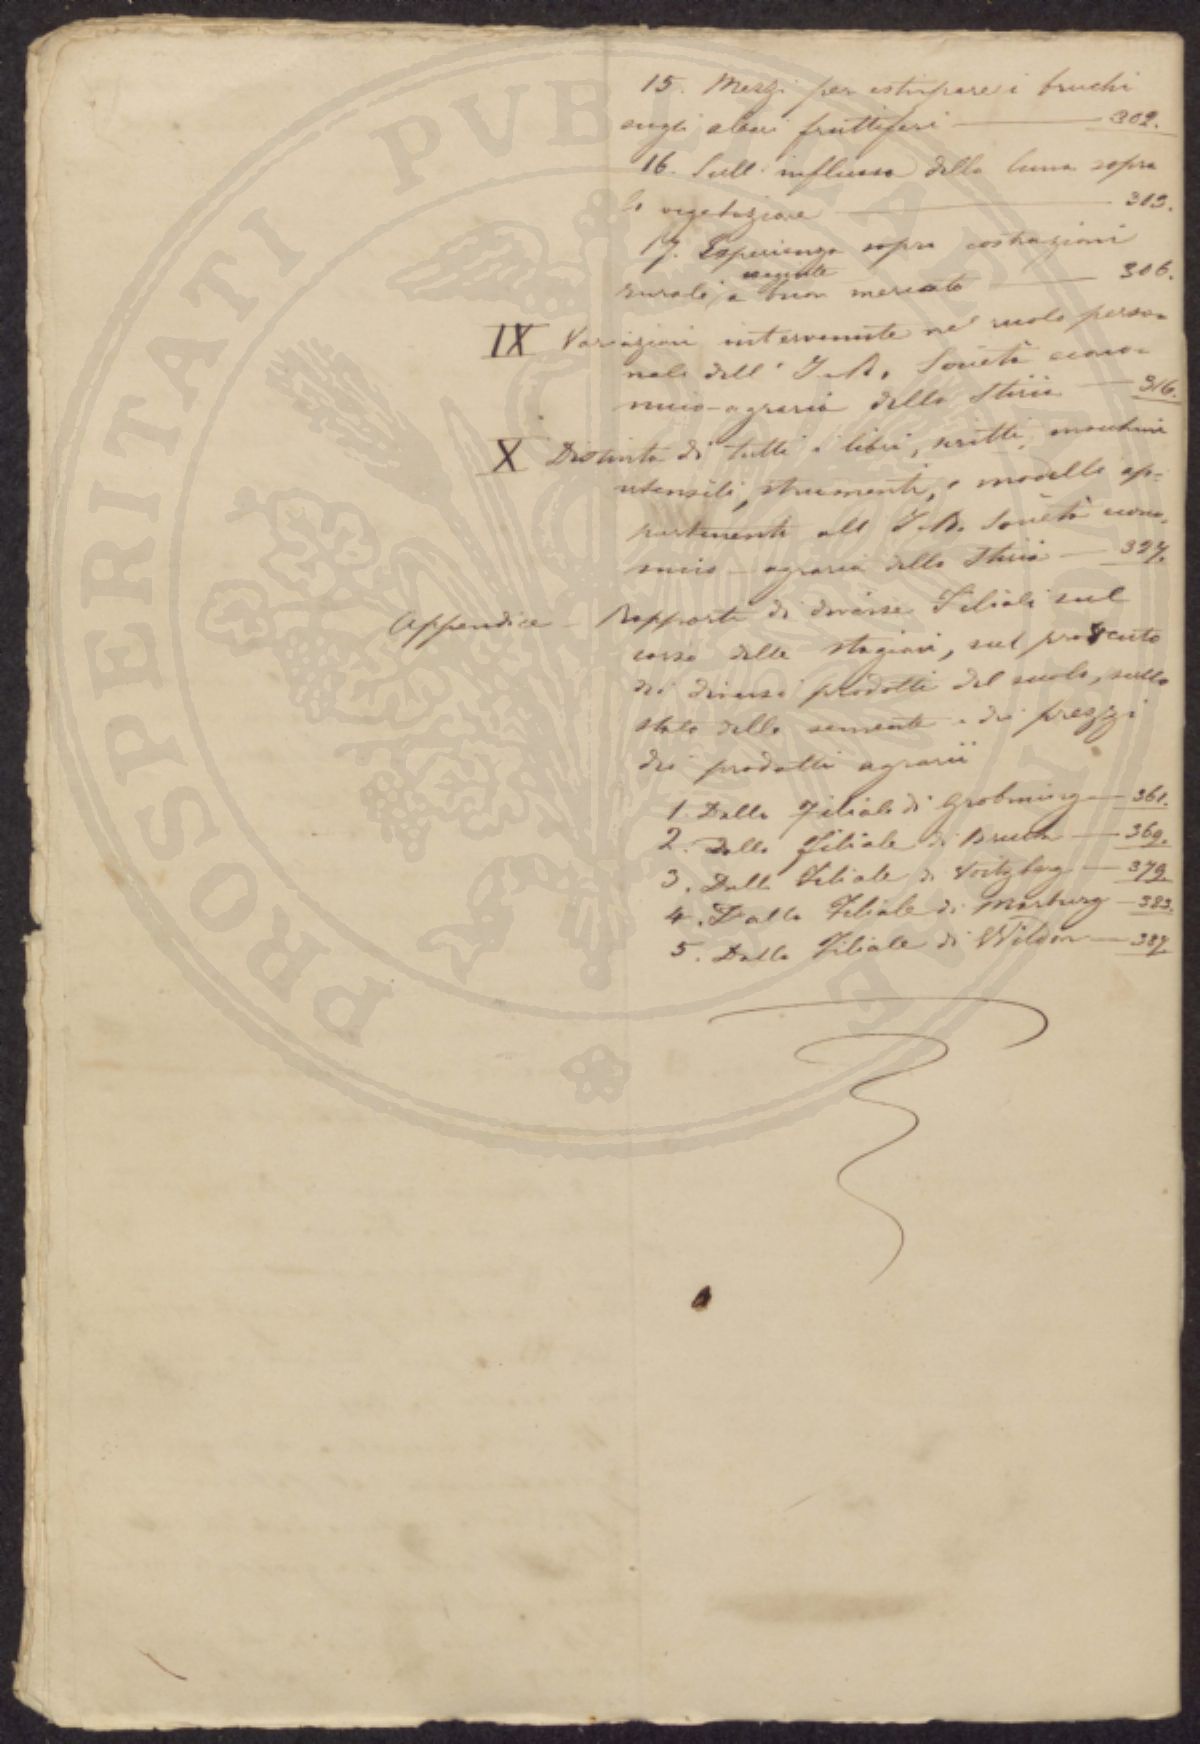 15. Mezzi per estirpare i bruchi
sugli alberi fruttiferi — 302.
16. Sull' influsso della luna sopra
la vegetazione — 303.
17. Esperienza sopra costruzioni
eseguite
rurali, a buon mercato — 306.
IX Variazioni intervenute nel ruolo perso=
nale dell' I. R. Società econo=
mico-agraria della Stiria — 316.
X Distinta di tutti i libri, scritti, macchine
utensili, strumenti, e modelli ap=
partinenti all I. R. Società econo=
mico-agraria della Stiria — 327.
Appendice — Rapporti di diverse Filiali sul
corso delle stagioni, sul prodotto
dei diversi prodotti del suolo, sullo
stato delle semente e dei prezzi
dei prodotti agrarii
1. Dalla Filiale di Grobming — 361.
2. Dalla Filiale di Bruck — 369.
3. Dalla Filiale di Voitzberg — 379.
4. Dalla Filiale di Marburg — 383.
5. Dalla Filiale di Wildon — 387.
PROSPERITATI PVBLICAE